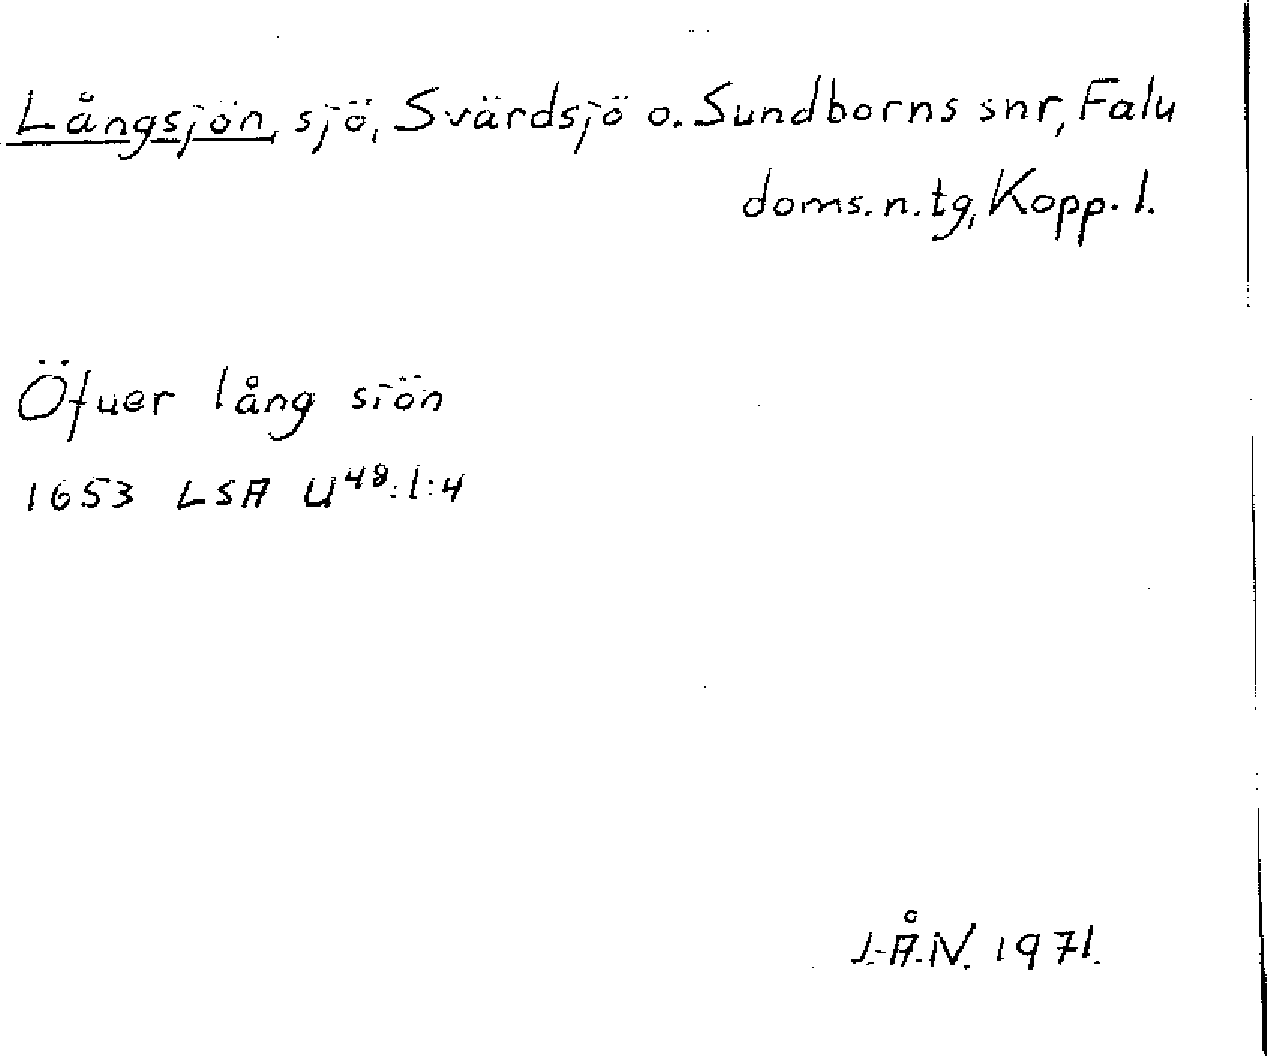 Långsjön, sjö, Svärdsjö o. Sundborns snr, Falu
doms. n. tg, Kopp. l.
Öfuer lång siön
1653 LSA U48:1:4
J.-Å.N. 1971.